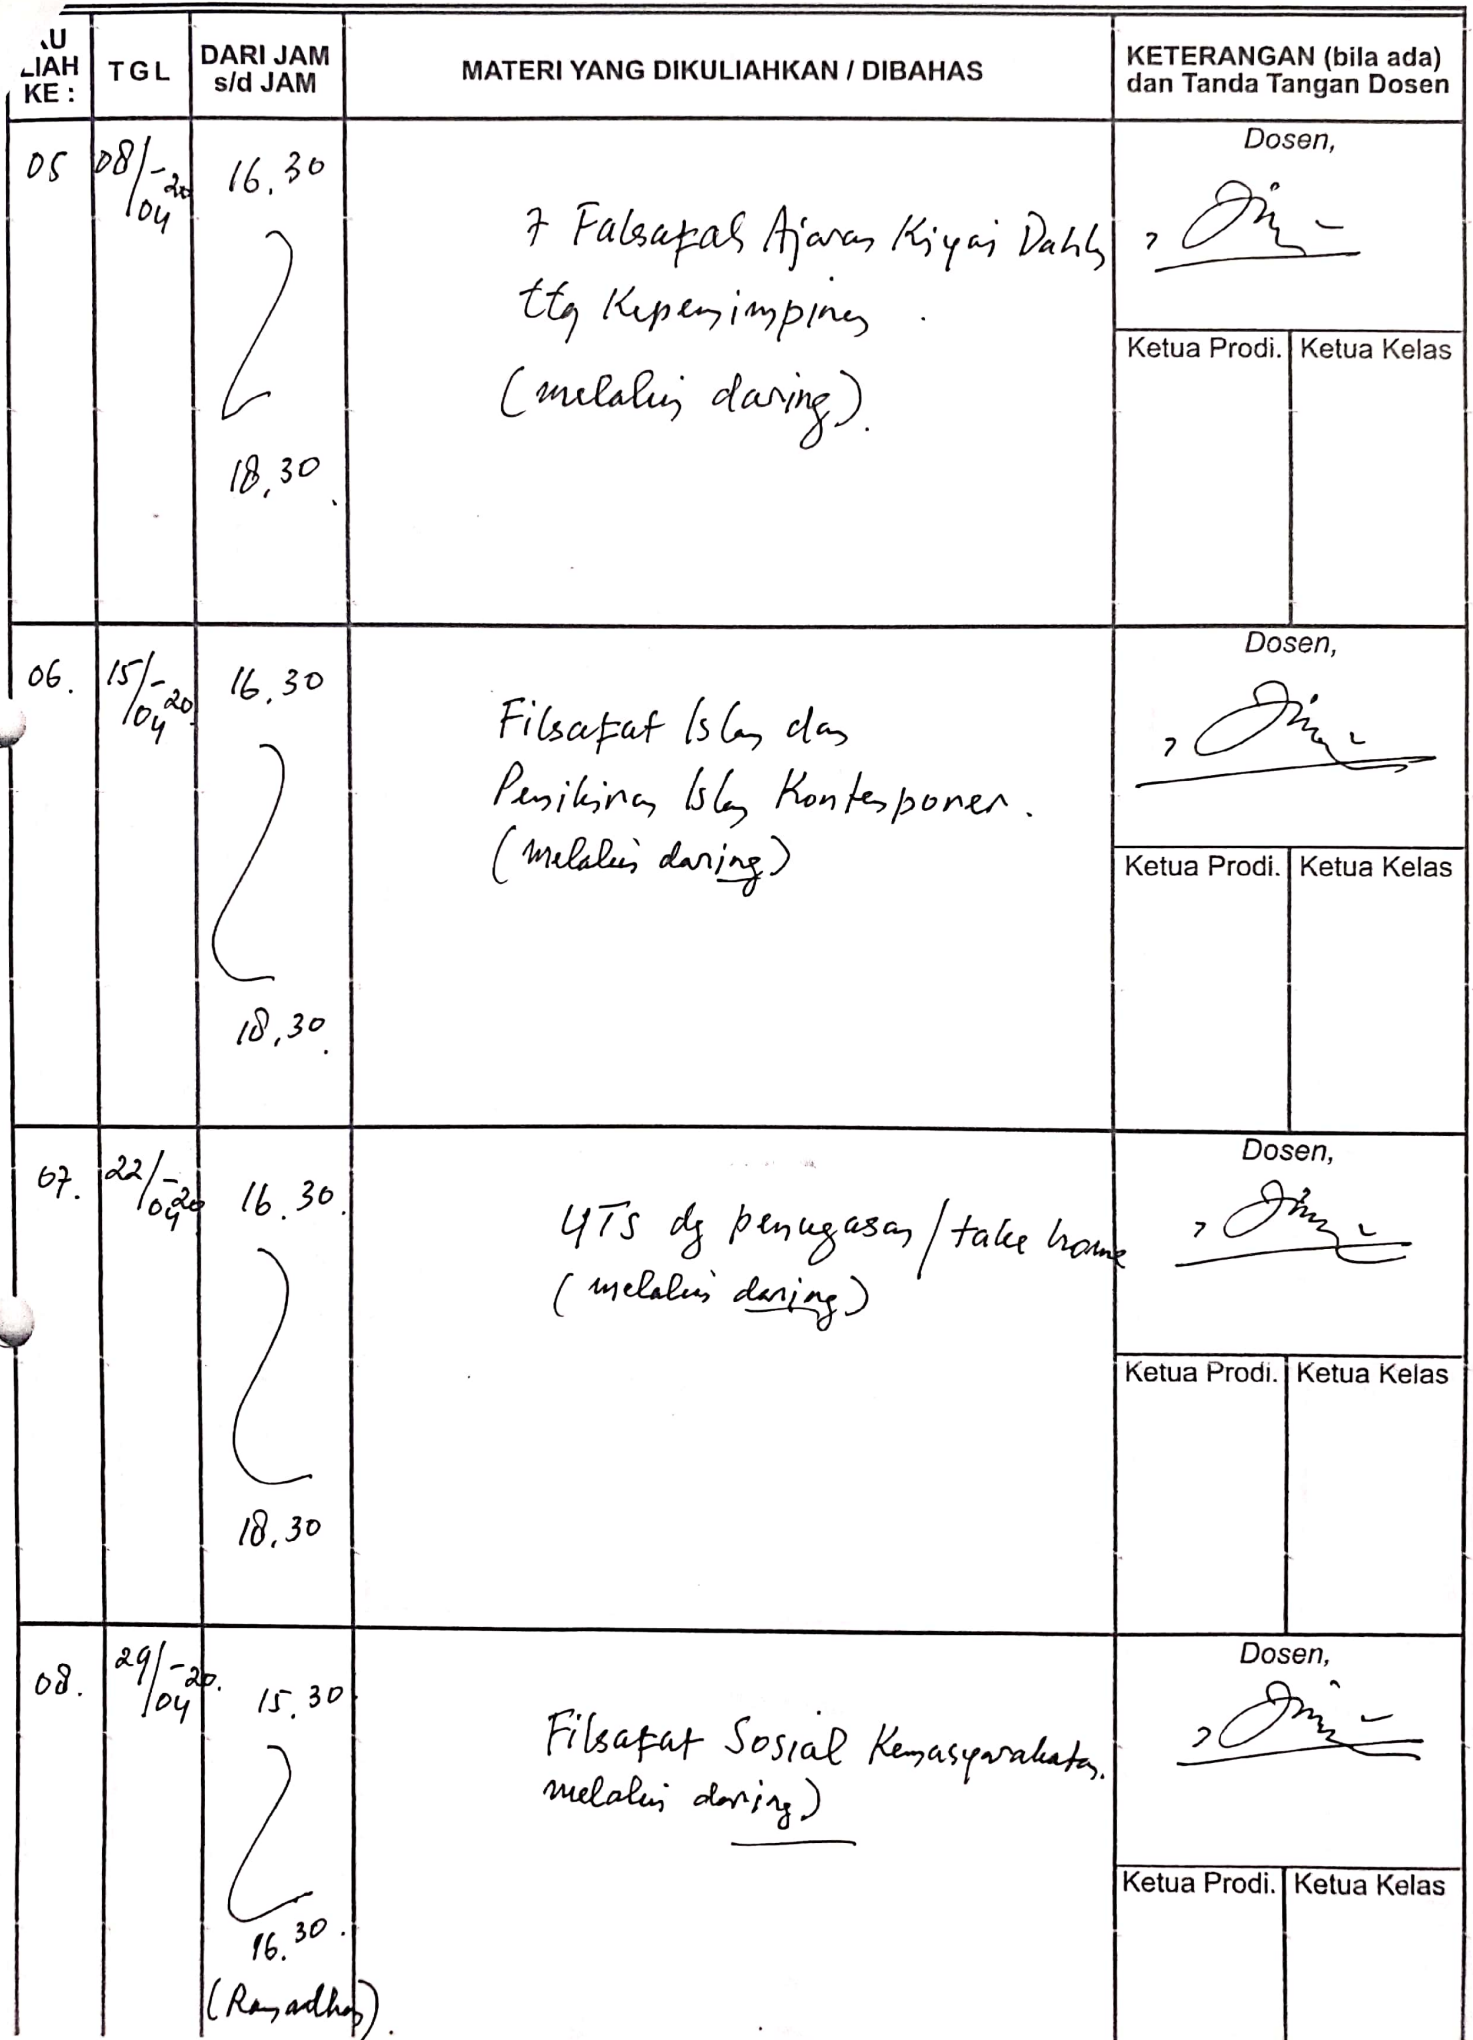 KU
LIAH
KE :
TGL
DARI JAM
s/d JAM
MATERI YANG DIKULIAHKAN / DIBAHAS
KETERANGAN (bila ada)
dan Tanda Tangan Dosen
05
08/04-20
16.30
18.30
7 Falsafah Ajaran Kiyai Dahlan
ttg Kepemimpinan
(melalui daring).
Dosen,
Ketua Prodi. Ketua Kelas
06.
15/04-20
16.30
18.30
Filsafat Islam dan
Pemikiran Islam Kontemporer.
(melalui daring)
Dosen,
Ketua Prodi. Ketua Kelas
07.
22/04-20
16.30
18.30
UTS dg penugasan / take home
(melalui daring)
Dosen,
Ketua Prodi. Ketua Kelas
08.
29/04-20.
15.30
16.30.
(Ramadhan).
Filsafat Sosial Kemasyarakatan.
melalui daring)
Dosen,
Ketua Prodi. Ketua Kelas